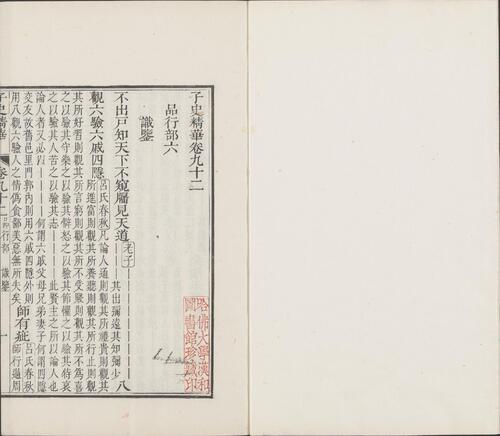 子史精華卷九十二
品行部六
識鑒
不出戶知天下不窺牖見天道老子————其出彌遠其知彌少八
觀六驗六戚四隱呂氏春秋凡論人通則觀其所禮貴則觀其
所進富則觀其所養聽則觀其所行止則觀
其所好習則觀其所言窮則觀其所不受賤則觀其所不為喜
之以驗其守樂之以驗其僻怒之以驗其節懼之以驗其特哀
之以驗其人苦之以驗其志————此賢主之所以論人也
論人者又必以————何謂六戚父母兄弟妻子何謂四隱
交友故舊邑里門郭內則用六戚四隱外則
用八觀六驗人之情僞貪鄙美惡無所失矣
師有疵呂氏春秋
師行過周
子史精華 卷九十二 品行部 識鑒 一
哈佛大學漢和
圖書館珍藏印